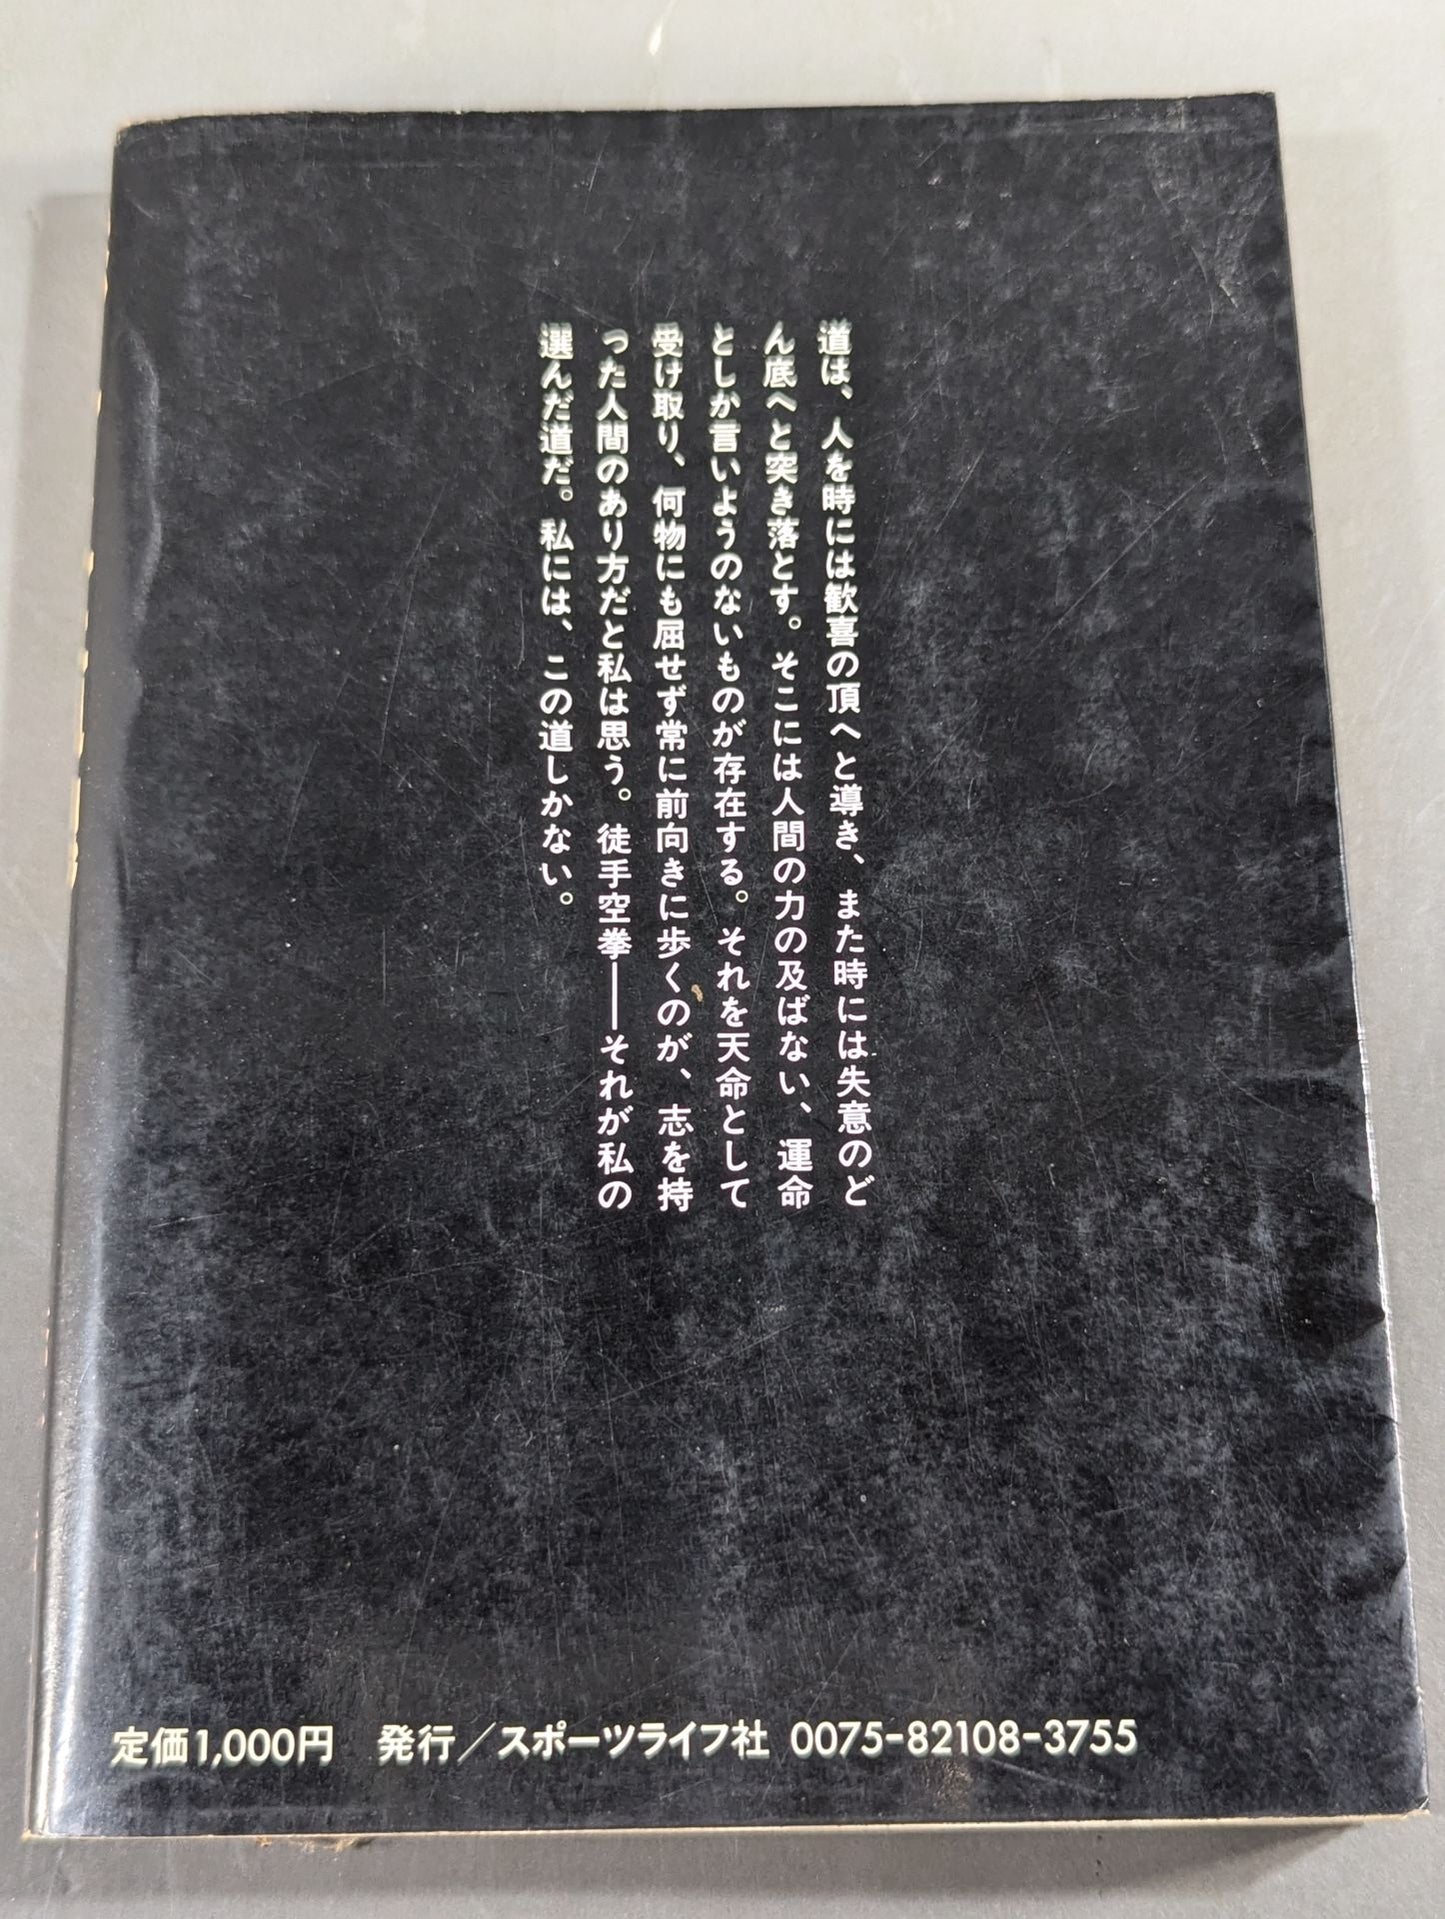 道は、人を時には歓喜の頂へと導き、また時には失意のど
ん底へと突き落とす。そこには人間の力の及ばない、運命
としか言いようのないものが存在する。それを天命として
受け取り、何物にも屈せず常に前向きに歩くのが、志を持
った人間のあり方だと私は思う。徒手空拳──それが私の
選んだ道だ。私には、この道しかない。
定価1,000円 発行／スポーツライフ社 0075-82108-3755